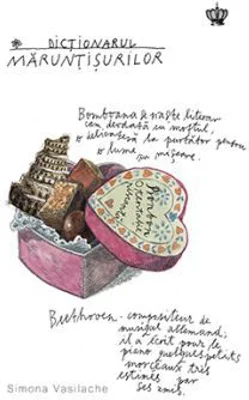 DICȚIONARUL
MĂRUNȚIȘURILOR
Bomboana se naște literar
cam deodată cu moftul,
o delicatesă la purtător pentru
o lume în mișcare.
Bonbon
O tentație
Beethoven - compositeur de
musique allemand;
il a écrit pour le
piano quelques petits
morceaux très
estimés par
ses amis.
Simona Vasilache